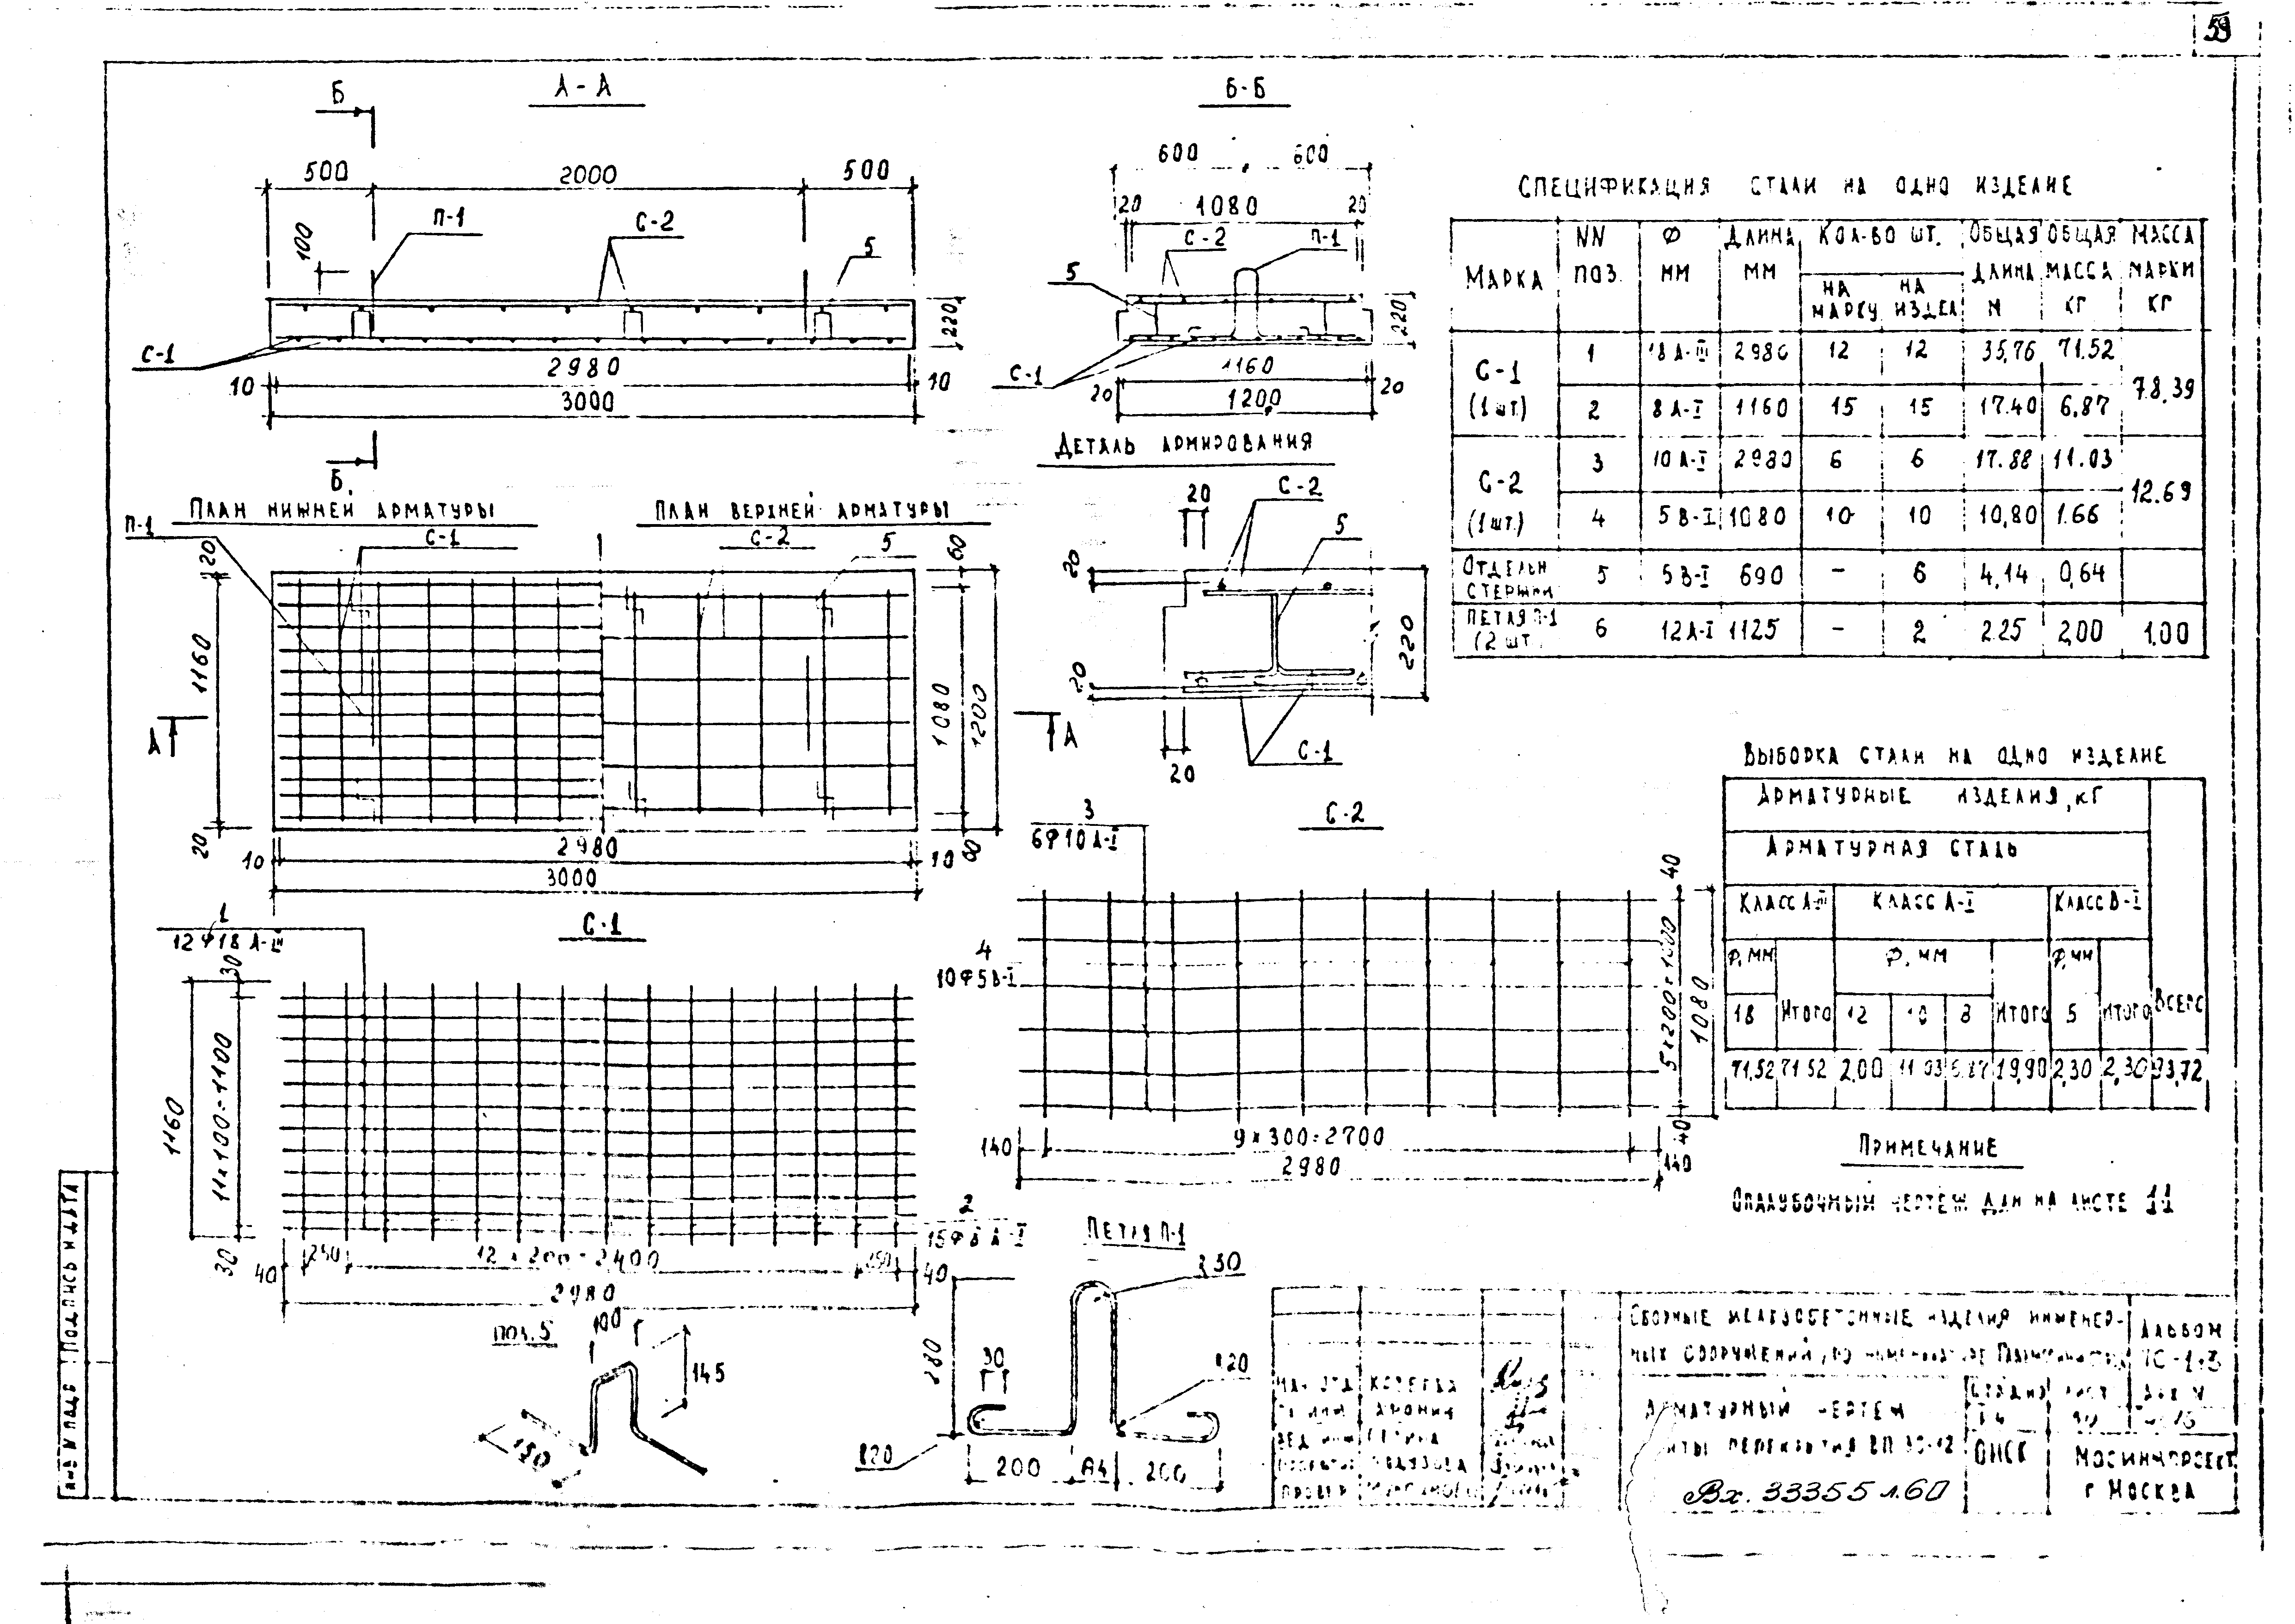 59
А-А
Б-Б
Б
500
2000
500
100
П-1
С-2
5
С-1
220
2980
10
10
3000
Б
600
600
20
1080
20
С-2
П-1
5
220
С-1
1160
20
20
1200
СПЕЦИФИКАЦИЯ СТАЛИ НА ОДНО ИЗДЕЛИЕ
МАРКА
NN ПОЗ.
Ф ММ
ДЛИНА ММ
КОЛ-ВО ШТ.
НА МАРКУ
НА ИЗДЕЛ
ОБЩАЯ ДЛИНА М
ОБЩАЯ МАССА КГ
МАССА МАРКИ КГ
С-1 (1 шт.)
1 18 А-III 2980 12 12 35,76 71.52
78,39
2 8 А-I 1160 15 15 17.40 6,87
С-2 (1 шт.)
3 10 А-I 2980 6 6 17.88 11.03
12.69
4 5 В-I 1080 10 10 10,80 1.66
ОТДЕЛЬН СТЕРЖНИ 5 5 В-I 690 – 6 4,14 0,64
ПЕТЛЯ П-1 (2 ШТ. 6 12 А-I 1125 – 2 2.25 2,00 1,00
ПЛАН НИЖНЕЙ АРМАТУРЫ
ПЛАН ВЕРХНЕЙ АРМАТУРЫ
П-1
С-1
С-2
5
20
1160
20
60
1080
1200
60
А
А
10
2980
10
3000
ДЕТАЛЬ АРМИРОВАНИЯ
20
С-2
5
20
220
20
С-1
20
ВЫБОРКА СТАЛИ НА ОДНО ИЗДЕЛИЕ
АРМАТУРНЫЕ ИЗДЕЛИЯ, КГ
АРМАТУРНАЯ СТАЛЬ
КЛАСС А-III
КЛАСС А-I
КЛАСС В-I
Ф, ММ
Ф, ММ
Ф, ММ
18 ИТОГО 12 10 8 ИТОГО 5 ИТОГО ВСЕГО
71,52 71 52 2,00 11 03 6.87 19,90 2,30 2,30 93,72
ПРИМЕЧАНИЕ
ОПАЛУБОЧНЫЙ ЧЕРТЕЖ ДАН НА ЛИСТЕ 11
С-1
1
12 Ф 18 А-III
30
1160
11×100=1100
30
40
250
12 × 200 = 2400
250
40
2980
2
15 Ф 8 А-I
С-2
3
6Ф10 А-I
4
10 Ф 5 В-I
40
5×200=1000
1080
40
140
9×300=2700
140
2980
ПОЗ. 5
100
145
ПЕТЛЯ П-1
R30
30
R20
R20
200
84
200
СБОРНЫЕ ЖЕЛЕЗОБЕТОННЫЕ ИЗДЕЛИЯ ИНЖЕНЕР-
НЫХ СООРУЖЕНИЙ
АЛЬБОМ
АРМАТУРНЫЙ ЧЕРТЕЖ
ПЛИТЫ ПЕРЕКРЫТИЯ ВП 30-12
СТАДИЯ
ЛИСТ
ОИСК
МОСИНЖПРОЕКТ
г МОСКВА
Вх. 33355 л.60
ПОДПИСЬ И ДАТА
ИНВ N ПОДЛ